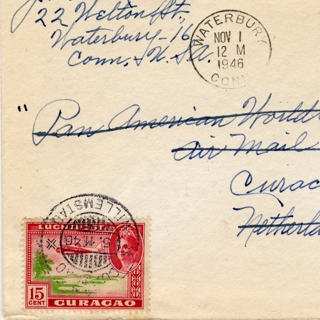 22 Welton St,
Waterbury-16
Conn, U.S.A.
WATERBURY
NOV 1
12 M
1946
CONN
"Pan American World
Air Mail
Curac
Netherla
WILLEMSTA
5 11 46
LUCH
15
CENT
CURACAO